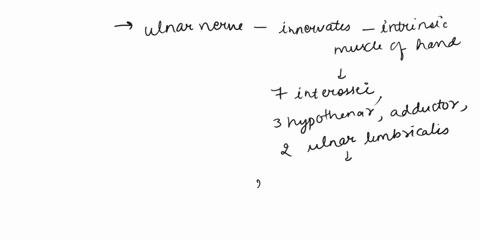 → ulnar nerve – innervates – intrinsic
muscle of hand
↓
7 interossei,
3 hypothenar, adductor,
2 ulnar lumbricalis
↓
,